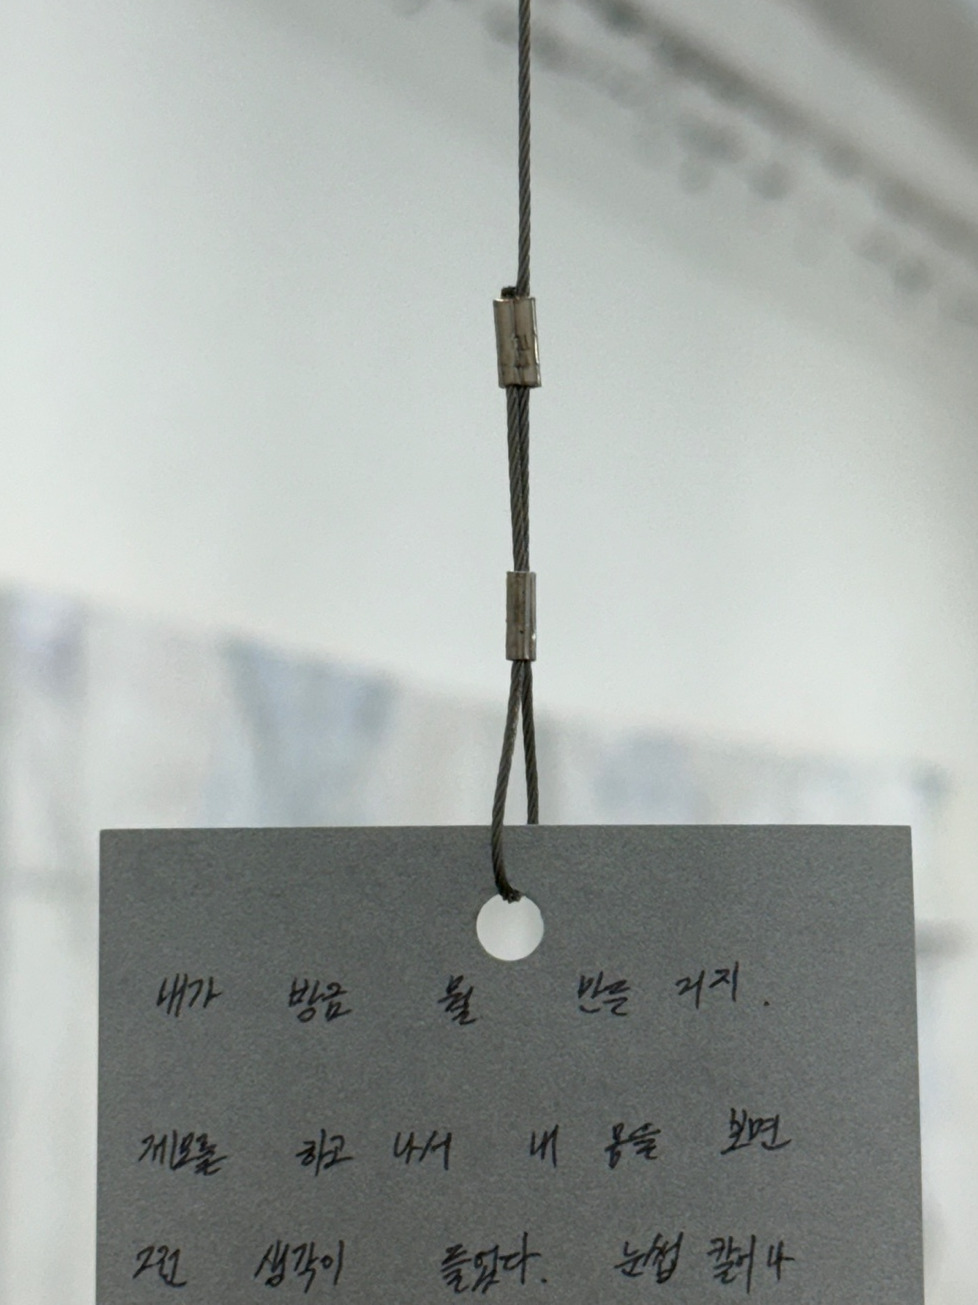 내가 방금 뭘 만든 거지.
제모를 하고 나서 내 몸을 보면
그런 생각이 들었다. 눈썹 칼이나